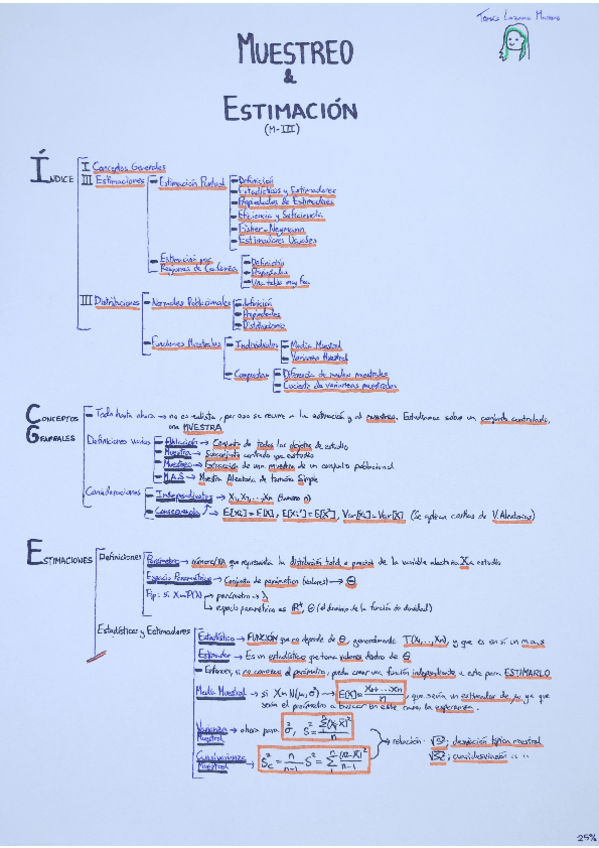 MUESTREO
&
ESTIMACIÓN
(M-III)
ÍNDICE
I Conceptos Generales
III Estimaciones
Estimación Puntual
Definición
Estadísticos y Estimadores
Propiedades de Estimadores
Eficiencia y Suficiencia
Fisher-Neymann
Estimadores Usuales
Estimación por
Regiones de Confianza
Definición
Propiedades
Una tabla muy fea
III Distribuciones
Normales Poblacionales
Definición
Propiedades
Distribuciones
Funciones Muestrales
Individuales
Media Muestral
Varianza Muestral
Compuestas
Diferencia de medias muestrales
Cociente de varianzas muestrales
CONCEPTOS
GENERALES
Todo hasta ahora → no es realista, por eso se recurre a la estimación y al muestreo. Estudiamos sobre un conjunto controlado,
una MUESTRA
Definiciones varias
Población → Conjunto de todos los objetos de estudio
Muestra → Subconjunto contado que estudio
Muestreo → Extracción de una muestra de un conjunto poblacional
M.A.S → Muestra Aleatoria de tamaño Simple
Consideraciones
Independientes → X₁, X₂, ..., Xn (tamaño n)
Consecuencia → E[Xi] = E[X], E[Xi²] = E[X²], Var[Xi] = Var[X] (Se aplican casillas de V. Aleatorias)
ESTIMACIONES
Definiciones
Parámetro → número/RA que representa la distribución total o parcial de la variable aleatoria X en estudio
Espacio Paramétrico → Conjunto de parámetros (valores) → Θ
Ejp: si X~P(λ)
parámetro → λ
espacio paramétrico es R⁺, Θ (el dominio de la función de densidad)
Estadísticos y Estimadores
Estadístico → FUNCIÓN que no depende de Θ, generalmente T(X₁,...,Xn), y que es en sí un m.a.s
Estimador → Es un estadístico que toma valores dentro de Θ
Entonces, si no conocemos el parámetro, puedo crear una función independiente a este para ESTIMARLO
Media Muestral → si X~N(μ,σ²) → E[X] = X₁+...Xn / n, que sería un estimador de μ, ya que
sería el parámetro a buscar en este caso, la esperanza.
Varianza
Muestral → ahora para σ², S² = Σ(Xi-X̄)² / n
Cuasivarianza
Muestral → Sc² = n/n-1 S² = Σ (Xi-X̄)² / n-1
relación: √S², desviación típica muestral
√Sc²; cuasidesviación " "
25%